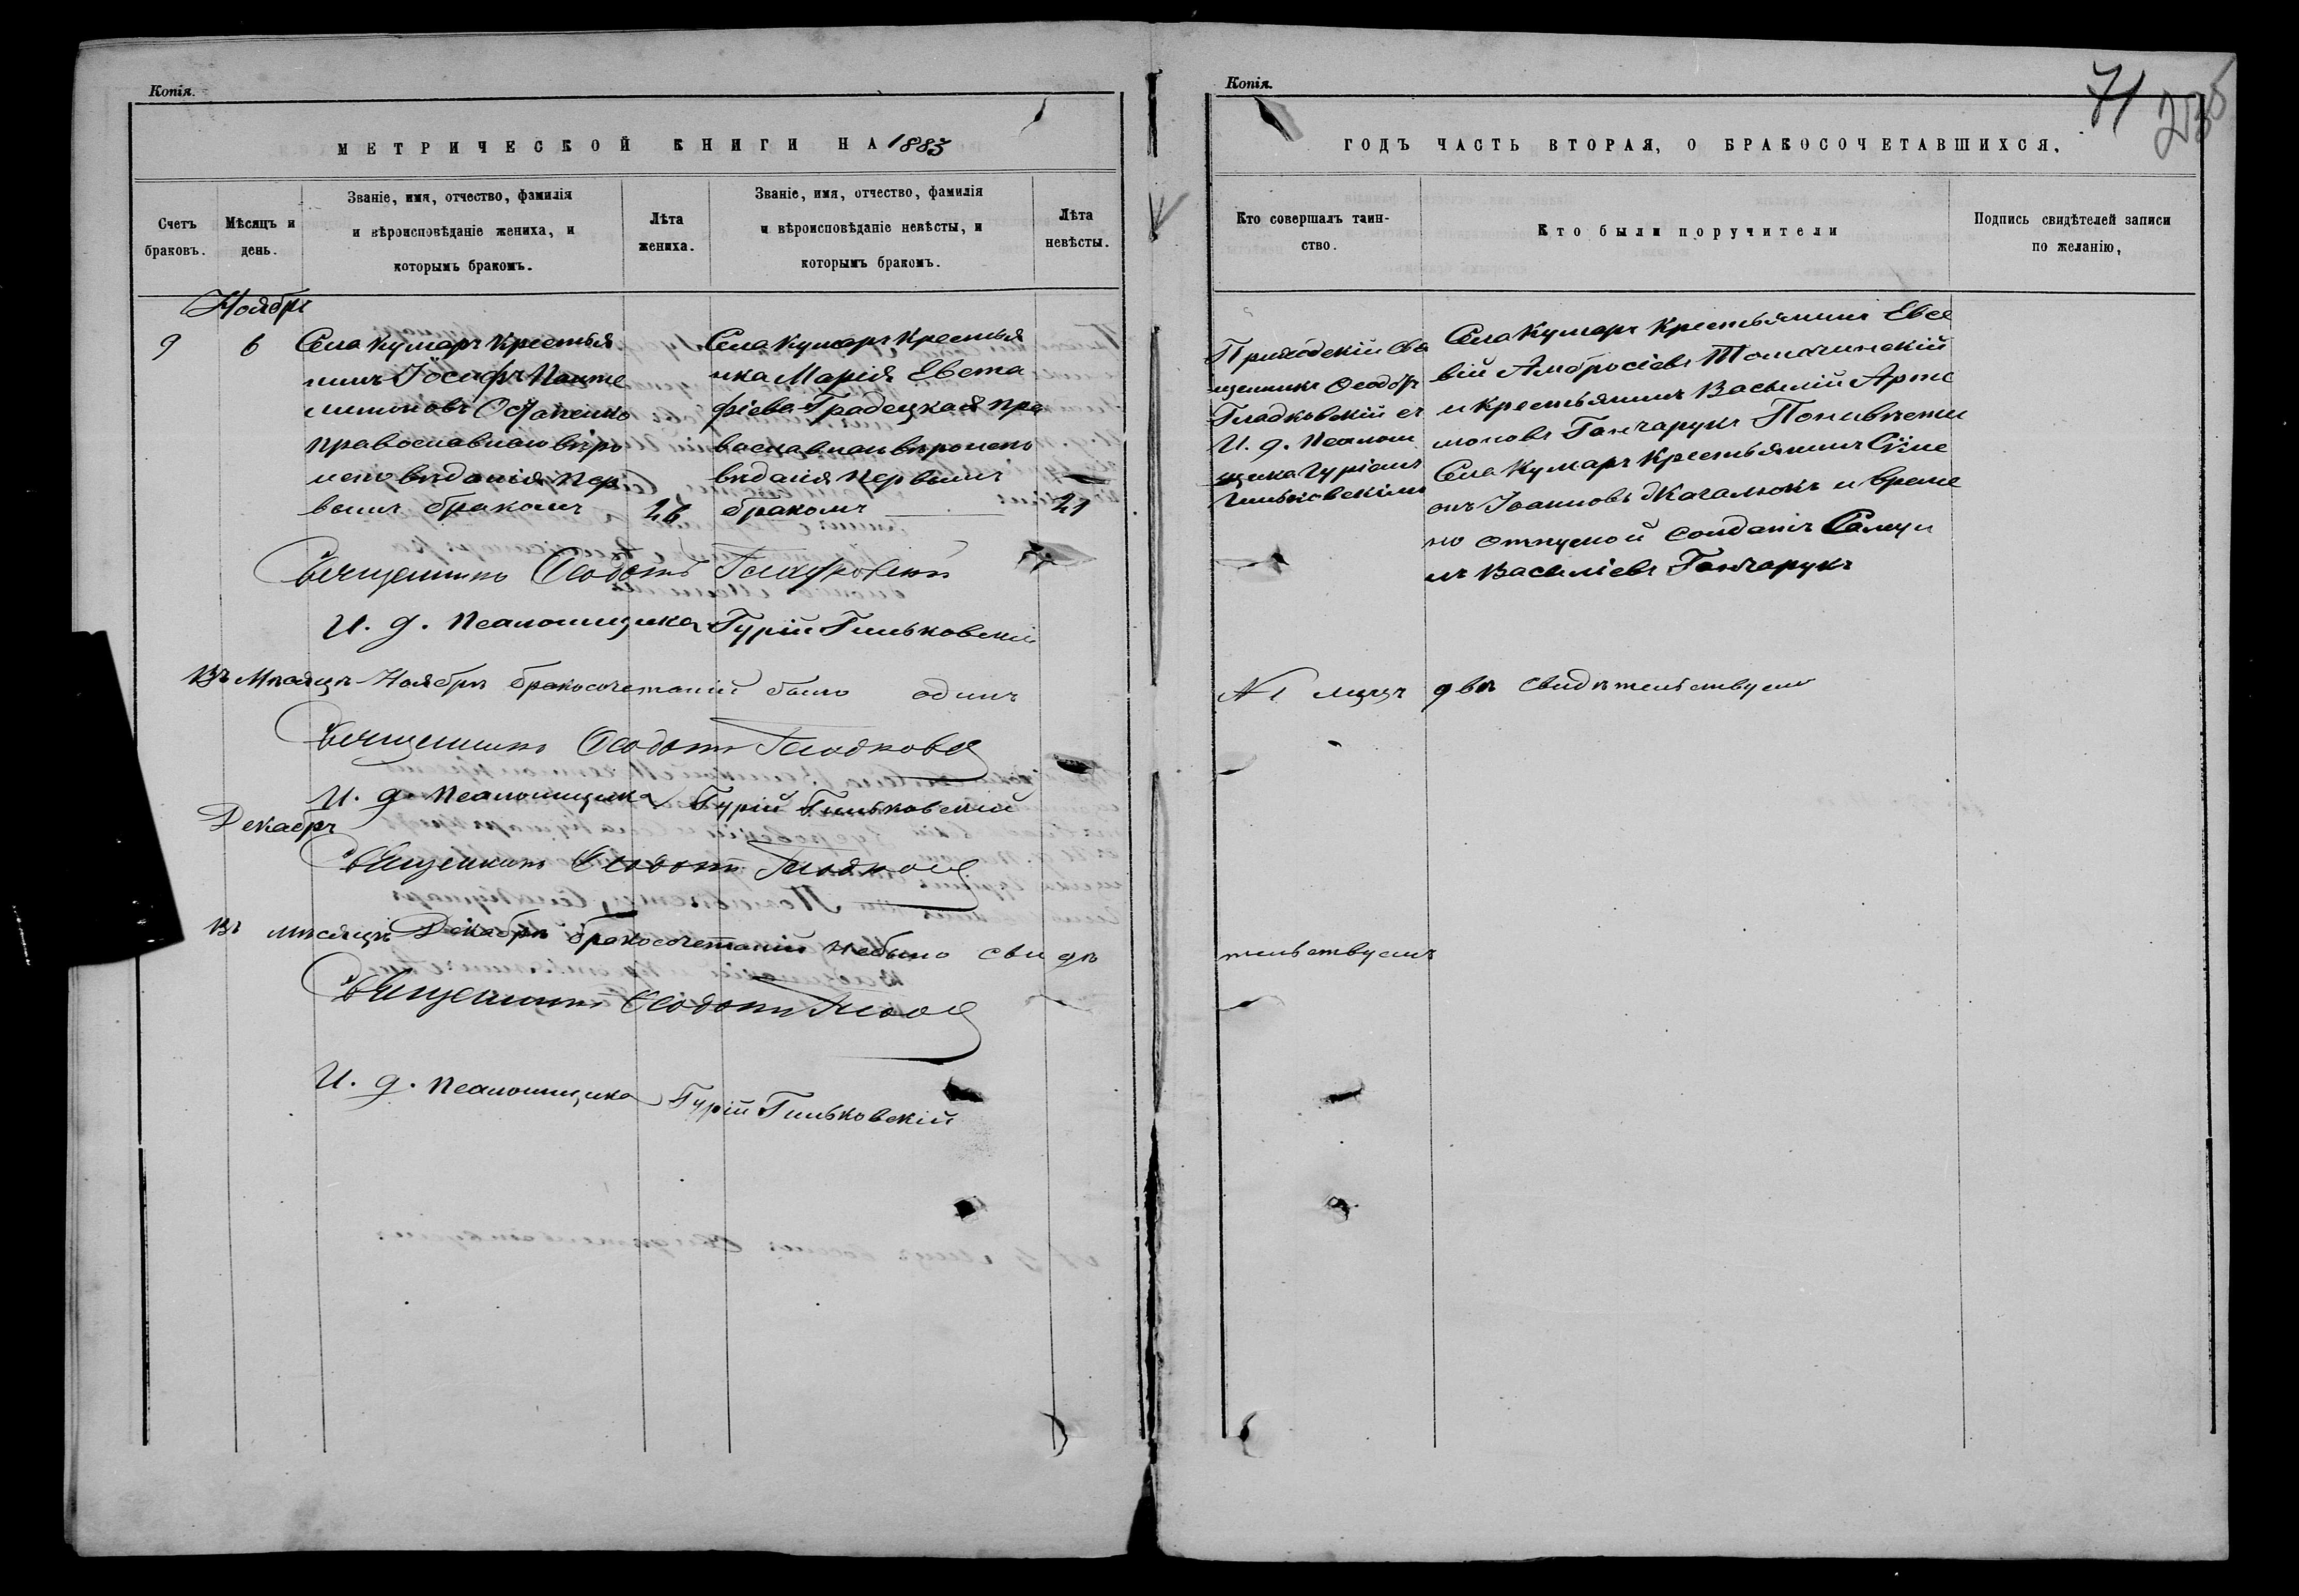 Копія.
МЕТРИЧЕСКОЙ КНИГИ НА 1883
Счетъ браковъ.
Мѣсяцъ и день.
Званіе, имя, отчество, фамилія
и вѣроисповѣданіе жениха, и
которымъ бракомъ.
Лѣта жениха.
Званіе, имя, отчество, фамилія
и вѣроисповѣданіе невѣсты, и
которымъ бракомъ.
Лѣта невѣсты.
Ноябрь
9
6
Села Кумаръ Крестья
нинъ Іосифъ Панте
лимоновъ Остапенко
православнаго вѣро
исповѣданія пер
вымъ бракомъ
26
Села Кумаръ Крестья
нка Марія Евста
фіева Градецкая пра
вославнаго вѣроиспо
вѣданія первымъ
бракомъ
21
Священникъ Ѳеодотъ Гладковскій
И. д. Псаломщика Гурій Гильковскій
Въ Мѣсяцѣ Ноябрѣ бракосочетаній было одинъ
Священникъ Ѳеодотъ
И. д. Псаломщика Гурій Гильковскій
Декабрь
Священникъ Ѳеодотъ
Въ мѣсяцѣ Декабрѣ бракосочетаній небыло свидѣ
Священникъ Ѳеодотъ
И. д. Псаломщика Гурій Гильковскій
Копія.
71
ГОДЪ ЧАСТЬ ВТОРАЯ, О БРАКОСОЧЕТАВШИХСЯ.
Кто совершалъ таин-
ство.
Кто были поручители
Подпись свидѣтелей записи
по желанію,
Приходскій Свя
щенникъ Ѳеодотъ
Гладковскій съ
И. д. Псалом
щика Гуріемъ
Гильковскимъ
Села Кумаръ Крестьянинъ Евсе
вій Амбросіевъ Томачинскій
и крестьянинъ Василій Арте
моновъ Ганчарукъ По невѣсти
Села Кумаръ Крестьянинъ Симе
онъ Іоанновъ Качалюкъ и време
но отпускной солдатъ Самуи
лъ Василіевъ Ганчарукъ
№ 1 лицъ два свидѣтельствуемъ
тельствуемъ